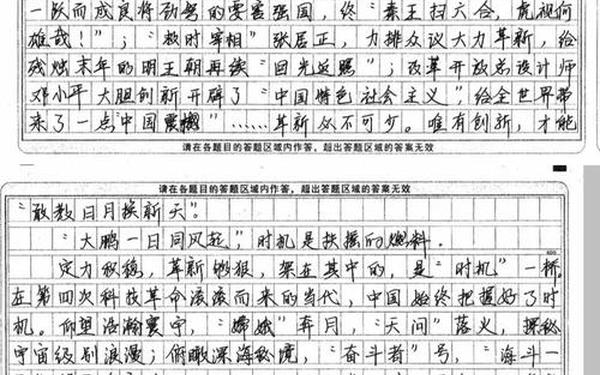 一跃而成良将劲弩的要害强国，终“秦王扫六合，虎视何
雄哉！”；“救时宰相”张居正，力排众议大力革新，给
残烛末年的明王朝再续“回光返照”；改革开放总设计师
邓小平大胆创新开辟了“中国特色社会主义”，给全世界带
来了一点“中国震撼”……革新必不可少。唯有创新，才能
请在各题目的答题区域内作答，超出答题区域的答案无效
请在各题目的答题区域内作答，超出答题区域的答案无效
“敢教日月换新天”。
“大鹏一日同风起”，时机是扶摇的燃料。
定力积稳，革新够狠，架在其中的，是“时机”一桥。
在第四次科技革命滚滚而来的当代，中国始终把握好了时
机。仰望浩瀚寰宇，“嫦娥”奔月，“天问”落火，探秘
宇宙级别浪漫；俯瞰深海秘境，“奋斗者”号，“海斗一